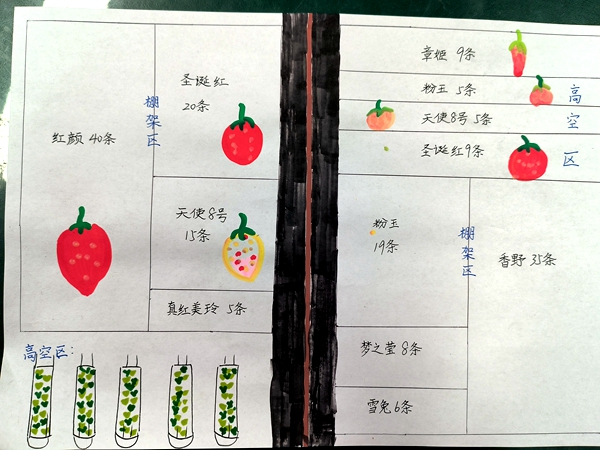 红颜 40条
棚架区
圣诞红
20条
天使8号
15条
真红美玲 5条
高空区:
章姬 9条
粉玉 5条
天使8号 5条
圣诞红9条
高空区
粉玉
19条
棚架区
香野 35条
梦之莹 8条
雪兔 6条